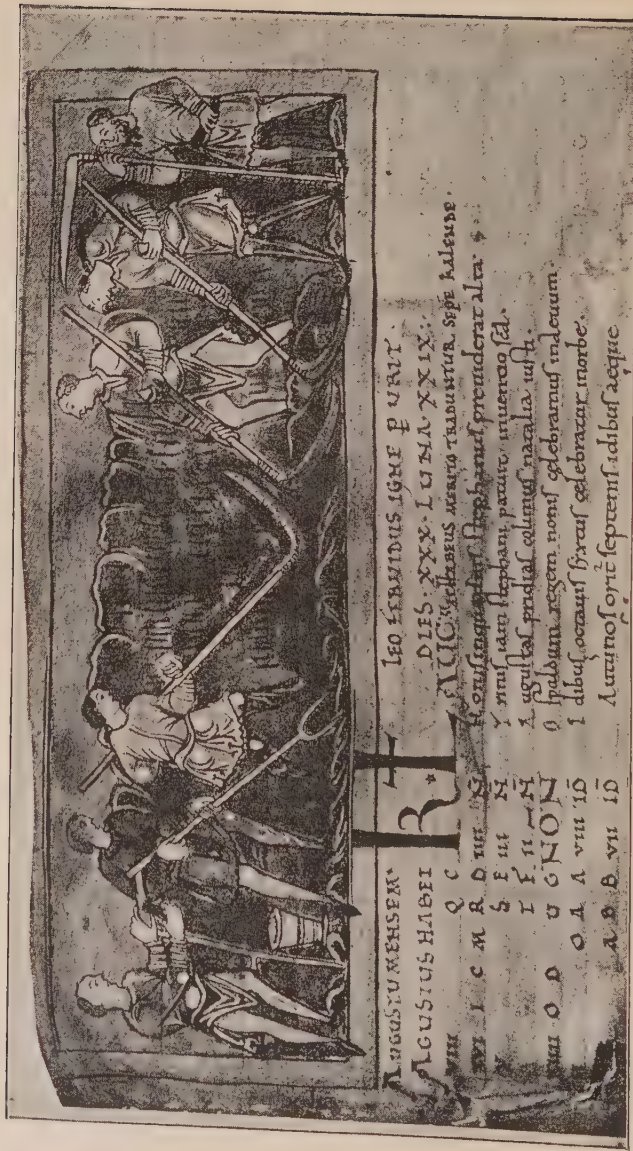 AUGUSTUMENSEM· LEO FERUIDUS IGNE P URIT·
AGUSTUS HABET DIES·XXX·LUNA·XXIX·
VIII Q C KL AUG MERITO TRADUNTUR SEPE KALENDE·
XVI I C M R D IIII N stephanus prouiderat alta
S E III N iam stephani patuit inuentio
T F II N Augustas pridias colimus natalia iusti·
IIII O D U G NON Ospaldum regem nonis celebramus indeuum·
O A A VIII ID Idibus octauis celebratur inorbe·
A B B VII ID septenis idibus aeque